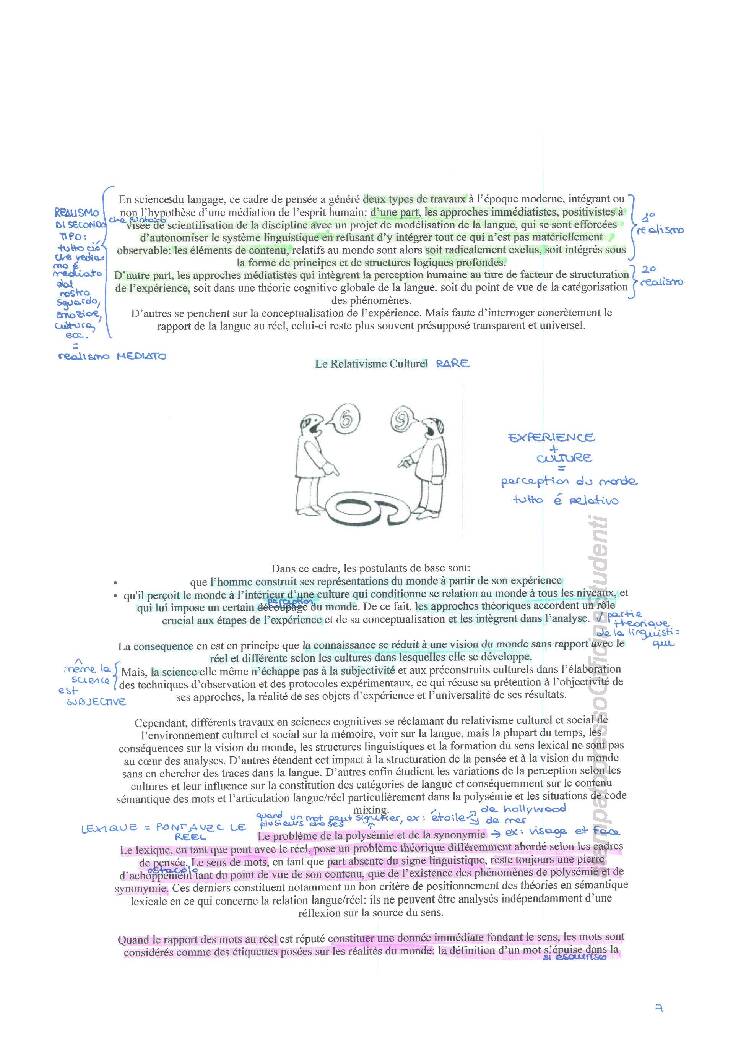 En sciencesdu langage, ce cadre de pensée a généré deux types de travaux à l'époque moderne, intégrant ou
non l'hypothèse d'une médiation de l'esprit humain: d'une part, les approches immédiatistes, positivistes à
visée de scientifisation de la discipline avec un projet de modélisation de la langue, qui se sont efforcées
d'autonomiser le système linguistique en refusant d'y intégrer tout ce qui n'est pas matériellement
observable: les éléments de contenu, relatifs au monde sont alors soit radicalement exclus, soit intégrés sous
la forme de principes et de structures logiques profondes.
D'autre part, les approches médiatistes qui intègrent la perception humaine au titre de facteur de structuration
de l'expérience, soit dans une théorie cognitive globale de la langue, soit du point de vue de la catégorisation
des phénomènes.
D'autres se penchent sur la conceptualisation de l'expérience. Mais faute d'interroger concrètement le
rapport de la langue au réel, celui-ci reste plus souvent présupposé transparent et universel.
REALISMO
DI SECONDO
TIPO:
tutto ciò
che vedia
mo è
mediato
dal
nostro
sguardo,
emozioni,
cultura,
ecc.
=
realismo MEDIATO
1°
realismo
2°
realismo
Le Relativisme Culturel RARE
6 9
EXPERIENCE
+
CULTURE
=
perception du monde
tutto è relativo
Dans ce cadre, les postulants de base sont:
• que l'homme construit ses représentations du monde à partir de son expérience
• qu'il perçoit le monde à l'intérieur d'une culture qui conditionne se relation au monde à tous les niveaux, et
perception
qui lui impose un certain découpage du monde. De ce fait, les approches théoriques accordent un rôle
crucial aux étapes de l'expérience et de sa conceptualisation et les intègrent dans l'analyse.
partie
théorique
de la linguisti=
que
La consequence en est en principe que la connaissance se réduit à une vision du monde sans rapport avec le
réel et différente selon les cultures dans lesquelles elle se développe.
même la
science
est
SUBJECTIVE
Mais, la science elle même n'échappe pas à la subjectivité et aux préconstruits culturels dans l'élaboration
des techniques d'observation et des protocoles expérimentaux, ce qui récuse sa prétention à l'objectivité de
ses approches, la réalité de ses objets d'expérience et l'universalité de ses résultats.
Cependant, différents travaux en sciences cognitives se réclamant du relativisme culturel et social de
l'environnement culturel et social sur la mémoire, voir sur la langue, mais la plupart du temps, les
conséquences sur la vision du monde, les structures linguistiques et la formation du sens lexical ne sont pas
au cœur des analyses. D'autres étendent cet impact à la structuration de la pensée et à la vision du monde
sans en chercher des traces dans la langue. D'autres enfin étudient les variations de la perception selon les
cultures et leur influence sur la constitution des catégories de langue et conséquemment sur le contenu
sémantique des mots et l'articulation langue/réel particulièrement dans la polysémie et les situations de code
mixing.
quand un mot peut signifier, ex: étoile de hollywood
plusieurs choses de mer
LEXIQUE = PONT AVEC LE
REEL
Le problème de la polysémie et de la synonymie → ex: visage et face
Le lexique, en tant que pont avec le réel, pose un problème théorique différemment abordé selon les cadres
de pensée. Le sens de mots, en tant que part absente du signe linguistique, reste toujours une pierre
ostacolo
d'achoppement tant du point de vue de son contenu, que de l'existence des phénomènes de polysémie et de
synonymie. Ces derniers constituent notamment un bon critère de positionnement des théories en sémantique
lexicale en ce qui concerne la relation langue/réel: ils ne peuvent être analysés indépendamment d'une
réflexion sur la source du sens.
Quand le rapport des mots au réel est réputé constituer une donnée immédiate fondant le sens, les mots sont
considérés comme des étiquettes posées sur les réalités du monde: la définition d'un mot s'épuise dans la
si esaurisce
7